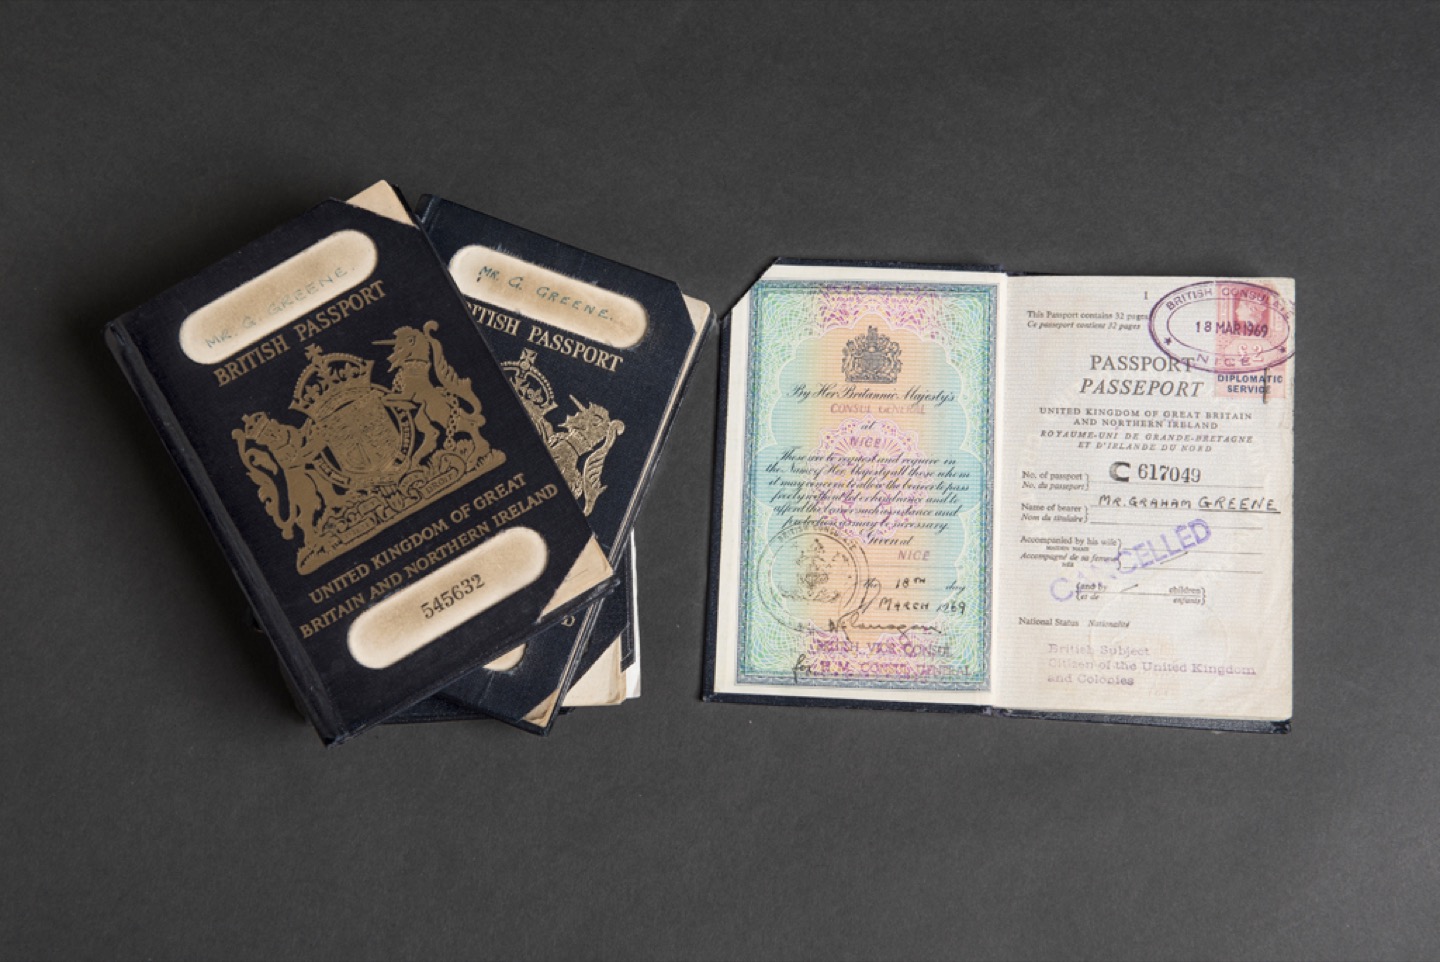 MR. G. GREENE.
BRITISH PASSPORT
DROIT
UNITED KINGDOM OF GREAT
BRITAIN AND NORTHERN IRELAND
545632
MR. G. GREENE.
TISH PASSPORT
D
By Her Britannic Majesty's
CONSUL GENERAL
at
NICE
These are to request and require in
the Name of Her Majesty all those whom
it may concern to allow the bearer to pass
freely without let or hindrance and to
afford the bearer such assistance and
protection as may be necessary.
Given at
NICE
BRITISH CONSULATE
the 18TH day
of MARCH 1969
BRITISH VICE CONSUL
for H.M. CONSUL GENERAL
1
This Passport contains 32 pages
Ce passeport contient 32 pages
BRITISH CONSULATE
18 MAR 1969
NICE
£2
DIPLOMATIC
SERVICE
PASSPORT
PASSEPORT
UNITED KINGDOM OF GREAT BRITAIN
AND NORTHERN IRELAND
ROYAUME-UNI DE GRANDE-BRETAGNE
ET D'IRLANDE DU NORD
No. of passport
No. du passeport
C 617049
Name of bearer
Nom du titulaire
MR. GRAHAM GREENE
Accompanied by his wife
MAIDEN NAME
Accompagné de sa femme
NÉE
CANCELLED
and by — children
et de enfants
National Status Nationalité
British Subject
Citizen of the United Kingdom
and Colonies